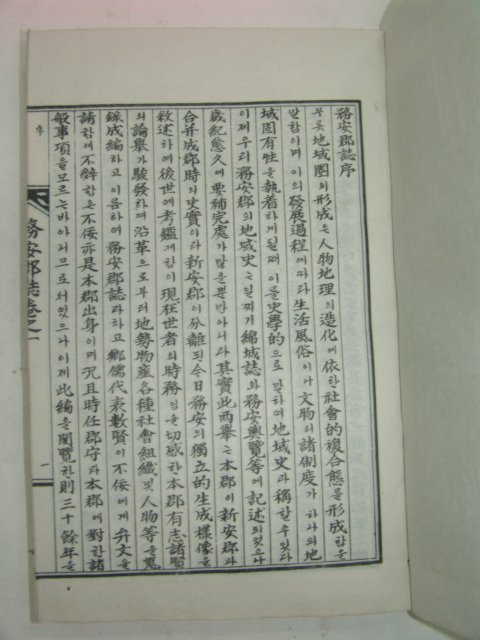 務安郡誌序
무릇地域圈의形成은人物地理의造化에依한社會的複合態를形成함을
말함이며이의發展過程에따라生活風俗이나文物의諸制度가하나의地
域固有性을執着하게될때이를史學的으로말하며地域史라稱할수있다
이제우리務安郡의地域史는일찌기綿城誌와務安輿覽等에記述되었으나
歲紀愈久에要補完處가많을뿐만아니라其實此西擧는本郡이新安郡과
合并成郡時의史實이라新安郡이分離된今日務安의獨立的生成樣像을
敘述하여後世에考鑑케함이現在世者의時務임을切感한本郡有志諸賢
의論擧가駿發하여沿革으로부터地勢物産各種社會組織및人物等을蒐
錄成編하고이름하여務安郡誌라하고鄕儒代表數賢이不佞에게弁文을
請함에不辭함은不佞亦是本郡出身이며況且時任郡守라本郡에對한諸
般事項을모르는바아니므로서였으나이제此編을閱覽한則三十餘年을
序
務安郡誌卷之一
一